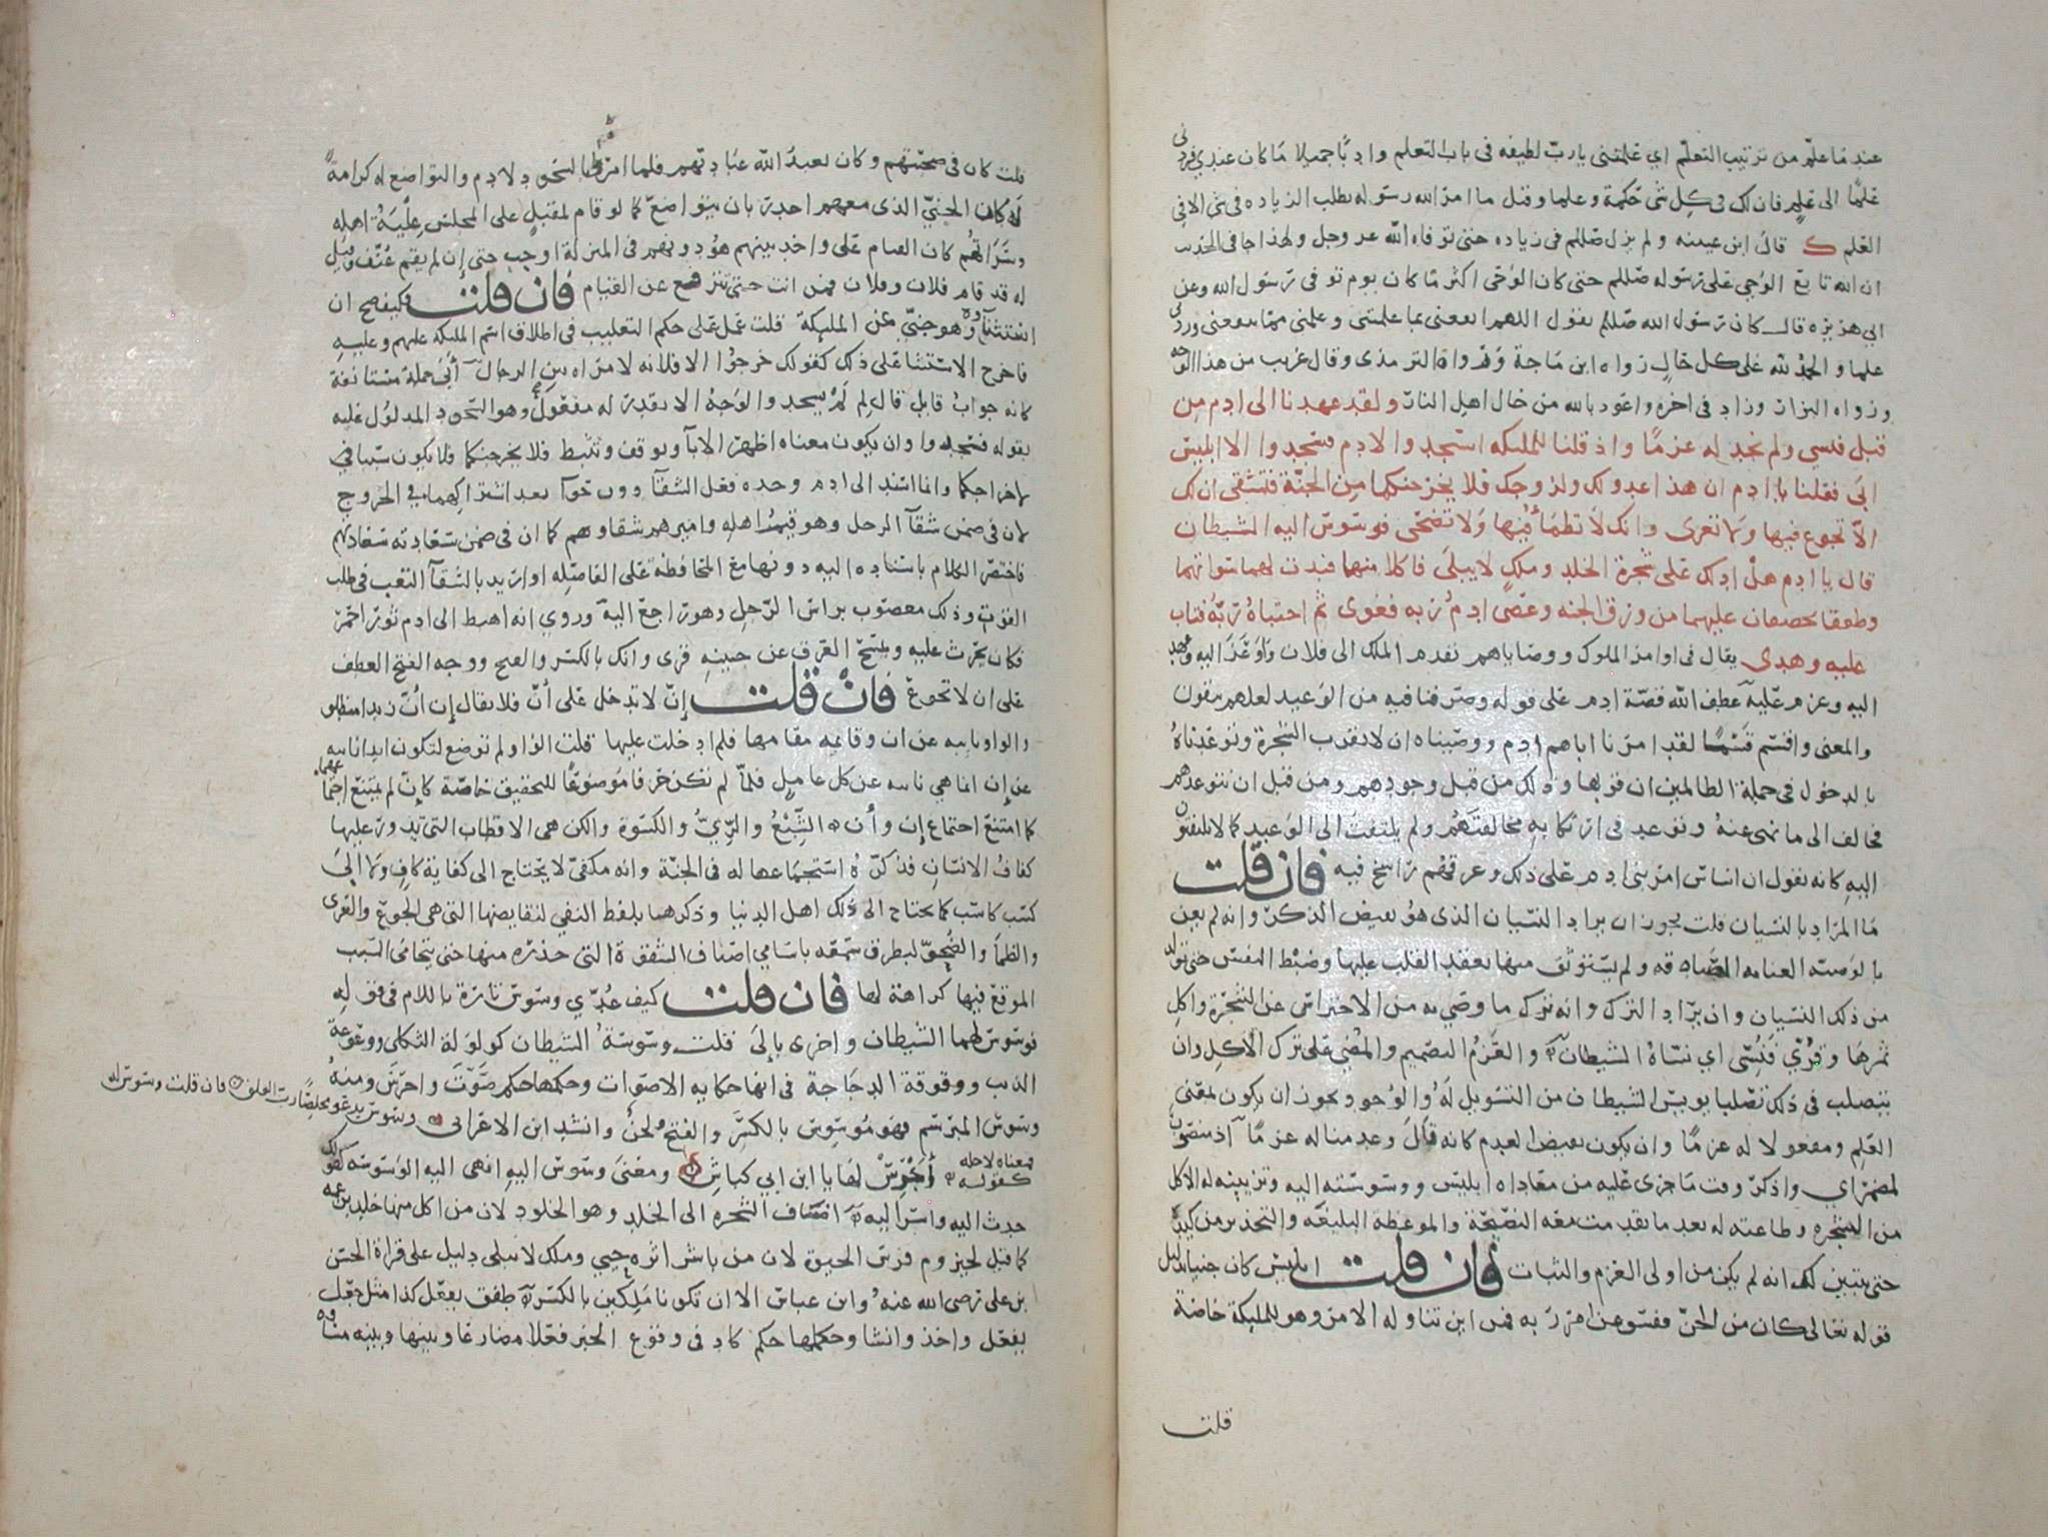 عند ما علم من ترتيب التعلم اي علمتني يا رب لطيفه في باب التعلم وادبا جميلا ما كان عندي فزدني
علما الى علم فان لك في كل شي حكمة وعلما وقيل ما امر الله رسوله بطلب الزياده في شي الا في
العلم ك قال ابن عيينه ولم يزل صللم في زياده حتى توفاه الله عز وجل ولهذا جا في الحديث
ان الله تابع الوحي على رسوله صللم حتى كان الوحي اكثر ما كان يوم توفي رسول الله وعن
ابي هريره قال كان رسول الله صللم يقول اللهم انفعني بما علمتني وعلمني مما ينفعني وزدني
علما والحمد لله على كل حال رواه ابن ماجة ورواه الترمذي وقال غريب من هذا الوجه
ورواه البزار وزاد في اخره واعوذ بالله من حال اهل النار ولقد عهدنا الى ادم من
قبل فنسي ولم نجد له عزما واذ قلنا للمليكه اسجدوا لادم فسجدوا الا ابليس
ابى فقلنا يا ادم ان هذا عدو لك ولزوجك فلا يخرجنكما من الجنة فتشقى ان لك
الا تجوع فيها ولا تعرى وانك لا تظما فيها ولا تضحى فوسوس اليه الشيطان
قال يا ادم هل ادلك على شجرة الخلد وملك لا يبلى فاكلا منها فبدت لهما سواتهما
وطفقا يخصفان عليهما من ورق الجنه وعصى ادم ربه فغوى ثم اجتباه ربه فتاب
عليه وهدى يقال في اوامر الملوك ووصاياهم تقدم الملك الى فلان واوغر اليه وعهد
اليه وعزم عليه عطف الله قصة ادم على قوله وصرفنا فيه من الوعيد لعلهم يتقون
والمعنى واقسم قسما لقد امرنا اباهم ادم ووصيناه ان لا يقرب الشجرة وتوعدناه
بالدخول في جملة الظالمين ان قربها وذلك من قبل وجودهم ومن قبل ان نتوعدهم
فخالف الى ما نهي عنه وتوعد في ارتكابه مخالفتهم ولم يلتفت الى الوعيد كما لا يلتفتون
اليه كانه يقول ان اساس امر بني ادم على ذلك وعرقهم راسخ فيه فان قلت
ما المراد بالنسيان قلت يجوز ان يراد النسيان الذي هو نقيض الذكر وانه لم يعن
بالوصيه العنايه الصادقه ولم يستوثق منها بعقد القلب عليها وضبط النفس حتى تولد
من ذلك النسيان وان يراد الترك وانه ترك ما وصي به من الاحتراس عن الشجرة واكل
ثمرها وقري فنسي اي نساه الشيطان والعزم التصميم والمضي على ترك الاكل وان
يتصلب في ذلك تصلبا يويس الشيطان من التسويل له والوجود يجوز ان يكون بمعنى
العلم ومفعولاه له عزما وان يكون نقيض العدم كانه قال وعدمنا له عزما اذ منصوب
بمضمر اي واذكر وقت ما جرى عليه من معاداه ابليس ووسوسته اليه وتزيينه له الاكل
من الشجره وطاعته له بعد ما تقدمت معه النصيحة والموعظه البليغه والتحذير من كيده
حتى يتبين لك انه لم يكن من اولى العزم والثبات فان قلت ابليس كان جنيا بدليل
قوله تعالى كان من الجن ففسق عن امر ربه فمن اين تناوله الامر وهو للمليكة خاصة
قلت
قلت كان في صحبتهم وكان يعبد الله عبادتهم فلما امروا بالسجود لادم والتواضع له كرامة
له كان الجني الذي معهم اجدر بان يتواضع كما لو قام لمقبل على المجلس علية اهله
وسراتهم كان القيام على واحد بينهم هو دونهم في المنزلة اوجب حتى ان لم يقم عنف وقيل
له قد قام فلان وفلان فمن انت حتى تترفع عن القيام فان قلت فكيف صح ان
استثناوه وهو جني عن المليكة قلت عمل على حكم التغليب في اطلاق اسم المليكه عليهم وعليه
فاخرج الاستثنا على ذلك كقولك خرجوا الا فلانه لامراه بين الرجال ابى جملة مستانفة
كانه جواب قايل قال لم لم يسجد والوجه الا يقدر له مفعول وهو السجود المدلول عليه
بقوله فسجدوا وان يكون معناه اظهر الابا وتوقف وتثبط فلا يخرجنكما فلا يكون سببا في
لاخراجكما وانما اسند الى ادم وحده فعل الشقا دون حوا بعد اشتراكهما في الخروج
لان في ضمن شقا الرجل وهو قيم اهله واميرهم شقاوهم كما ان في ضمن سعادته سعادتهم
فاختصر الكلام باسناده اليه دونها مع المحافظه على الفاصله او اريد بالشقا التعب في طلب
القوت وذلك معصوب براس الرجل وهو راجع اليه وروي انه اهبط الى ادم ثور احمر
فكان يحرث عليه ويمسح العرق عن جبينه قري وانك بالكسر والفتح ووجه الفتح العطف
على ان لا تجوع فان قلت ان لا تدخل على ان فلا يقال ان ان زيدا منطلق
والواو نايبه عن ان وقايمه مقامها فلم ادخلت عليها قلت الواو لم توضع لتكون ابدا نايبه
عن ان انما هي نايبه عن كل عامل فلما لم تكن حرفا موضوعا للتحقيق خاصة كان لم يمتنع اجتماعهما
كما امتنع اجتماع ان وان الشبع والري والكسوة والكن هي الاقطاب التي يدور عليها
كفاف الانسان فذكره استجماعها له في الجنة وانه مكفى لا يحتاج الى كفاية كاف ولا الى
كسب كاسب كما يحتاج الى ذلك اهل الدنيا وذكرها بلفظ النفي لنقايضها التي هي الجوع والعرى
والظما والضحو ليطرق سمعه باسامي اصناف الشقوة التي حذره منها حتى يتحامى السبب
الموقع فيها كراهة لها فان قلت كيف عدي وسوس تارة باللام في قوله
فوسوس لهما الشيطان واخرى بالى قلت وسوسة الشيطان كولولة الثكلى ووعوعة
الذيب ووقوقة الدجاجة في انها حكايه الاصوات وحكمها حكم صوت واجرس ومنه
وسوس المبرسم فهو موسوس بالكسر والفتح لحن وانشد ابن الاعرابي وسوس يدعو مخلصا رب الفلق فان قلت وسوس له
معناه لاجله كقوله اجرس لها يا ابن ابي كباش ومعنى وسوس اليه انهى اليه الوسوسه كقولك
حدث اليه واسر اليه اضاف الشجره الى الخلد وهو الخلود لان من اكل منها خلد بزعمه
كما قيل لحيزوم فرس الحيوة لان من باشر اثره حيي وملك لا يبلى دليل على قراة الحسن
بن علي رضي الله عنه وابن عباس الا ان تكونا ملكين بالكسر طفق يفعل كذا مثل جعل
يفعل واخذ وانشا وحكمها حكم كاد في وقوع الخبر فعلا مضارعا وبينها وبينه مسافه